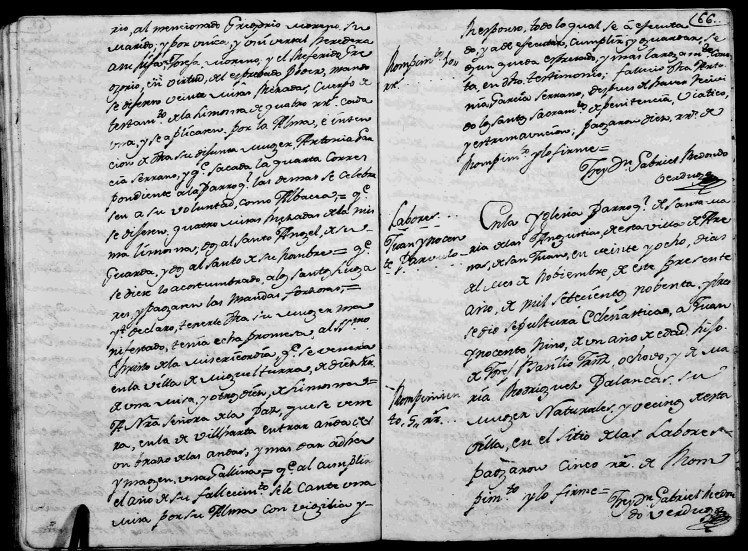 rio, al mencionado Gregorio Moreno, su
Marido, y por unica, y universal heredera
a su hija Josefa Moreno; y el referido Gre
gorio, en virtud, del expresado Poder, mando
se dijeren veinte misas Rezadas, Cuerpo de
testamto. de la limosna de quatro rrs. cada
una, y se aplicaren, por la Alma, e inten
cion de dha su difunta muger Antonia Gar
cia Serrano, y qe. sacada la quarta Corres
pondiente a la Parroql. las demas se celebra
sen a su voluntad, como Albacea,= qe.
se dijesen, quatro misas Rezadas de la mis
ma limosna, dos al Santo Angel, de su
Guarda, y dos al Santo de su nombre= qe.
se diese lo acostumbrado, a los Santos Luga
res, y pagaren las Mandas forzosas,=
yt. declaro, tenerle dha su muger ma
nifestado, tenia echa promesa, al SSmo.
Christo de la Misericordia, qe. se venera
en la villa de Miguelturra, de diez rrs.
de una misa, y otros diez, de limosna=
A Nra. Señora de la Paz, que se vene
ra, en la de Villarta entrar andas del
un brazo de las andas, y mas dar a dha
ymagen, una Gallina= qe. al cumplir
el año de su fallecimto. se le Cante una
misa por su Alma con vigilia y-
166.
Responso, todo lo qual se a efecuta
do, y a de efecutar, cumplir, y guardar, se
gun queda expresado, y mas largamte. cons
ta, en dho. testimonio; fallecio dha Anto
nia Garcia Serrano, despues de haver recivi
do los Santos Sacramtos. de penitencia, viatico,
y extremauncion, pagaron diez, rrs. de
Rompimto. y lo firme=
Frey Dn. Gabriel Redondo
Verdugo
Rompimto. 10
rrs.
Labores..
Juan Ynocen
te Parvulo
En la Yglesia Parroql. de Santa Ma
ria de las Angustias, de esta villa de Are
nas, de San Juan, en veinte y ocho, dias
del mes de Nobiembre, de este presente
año, de mil setecientos, nobenta, y tres
se dio sepultura Eclesiastica, a Juan
Ynocente Niño, de un año de edad, hijo
de Basilio Frnz. ochovo, y de Ma
ria Rodriguez Palancas, su
muger Naturales, y vecinos de esta
villa, en el sitio de las Labores
pagaron Cinco rrs. de Rom
pimto. y lo firme=
Frey Dn. Gabriel Redon
do Verdugo
Rompimien
to. 5, rrs.